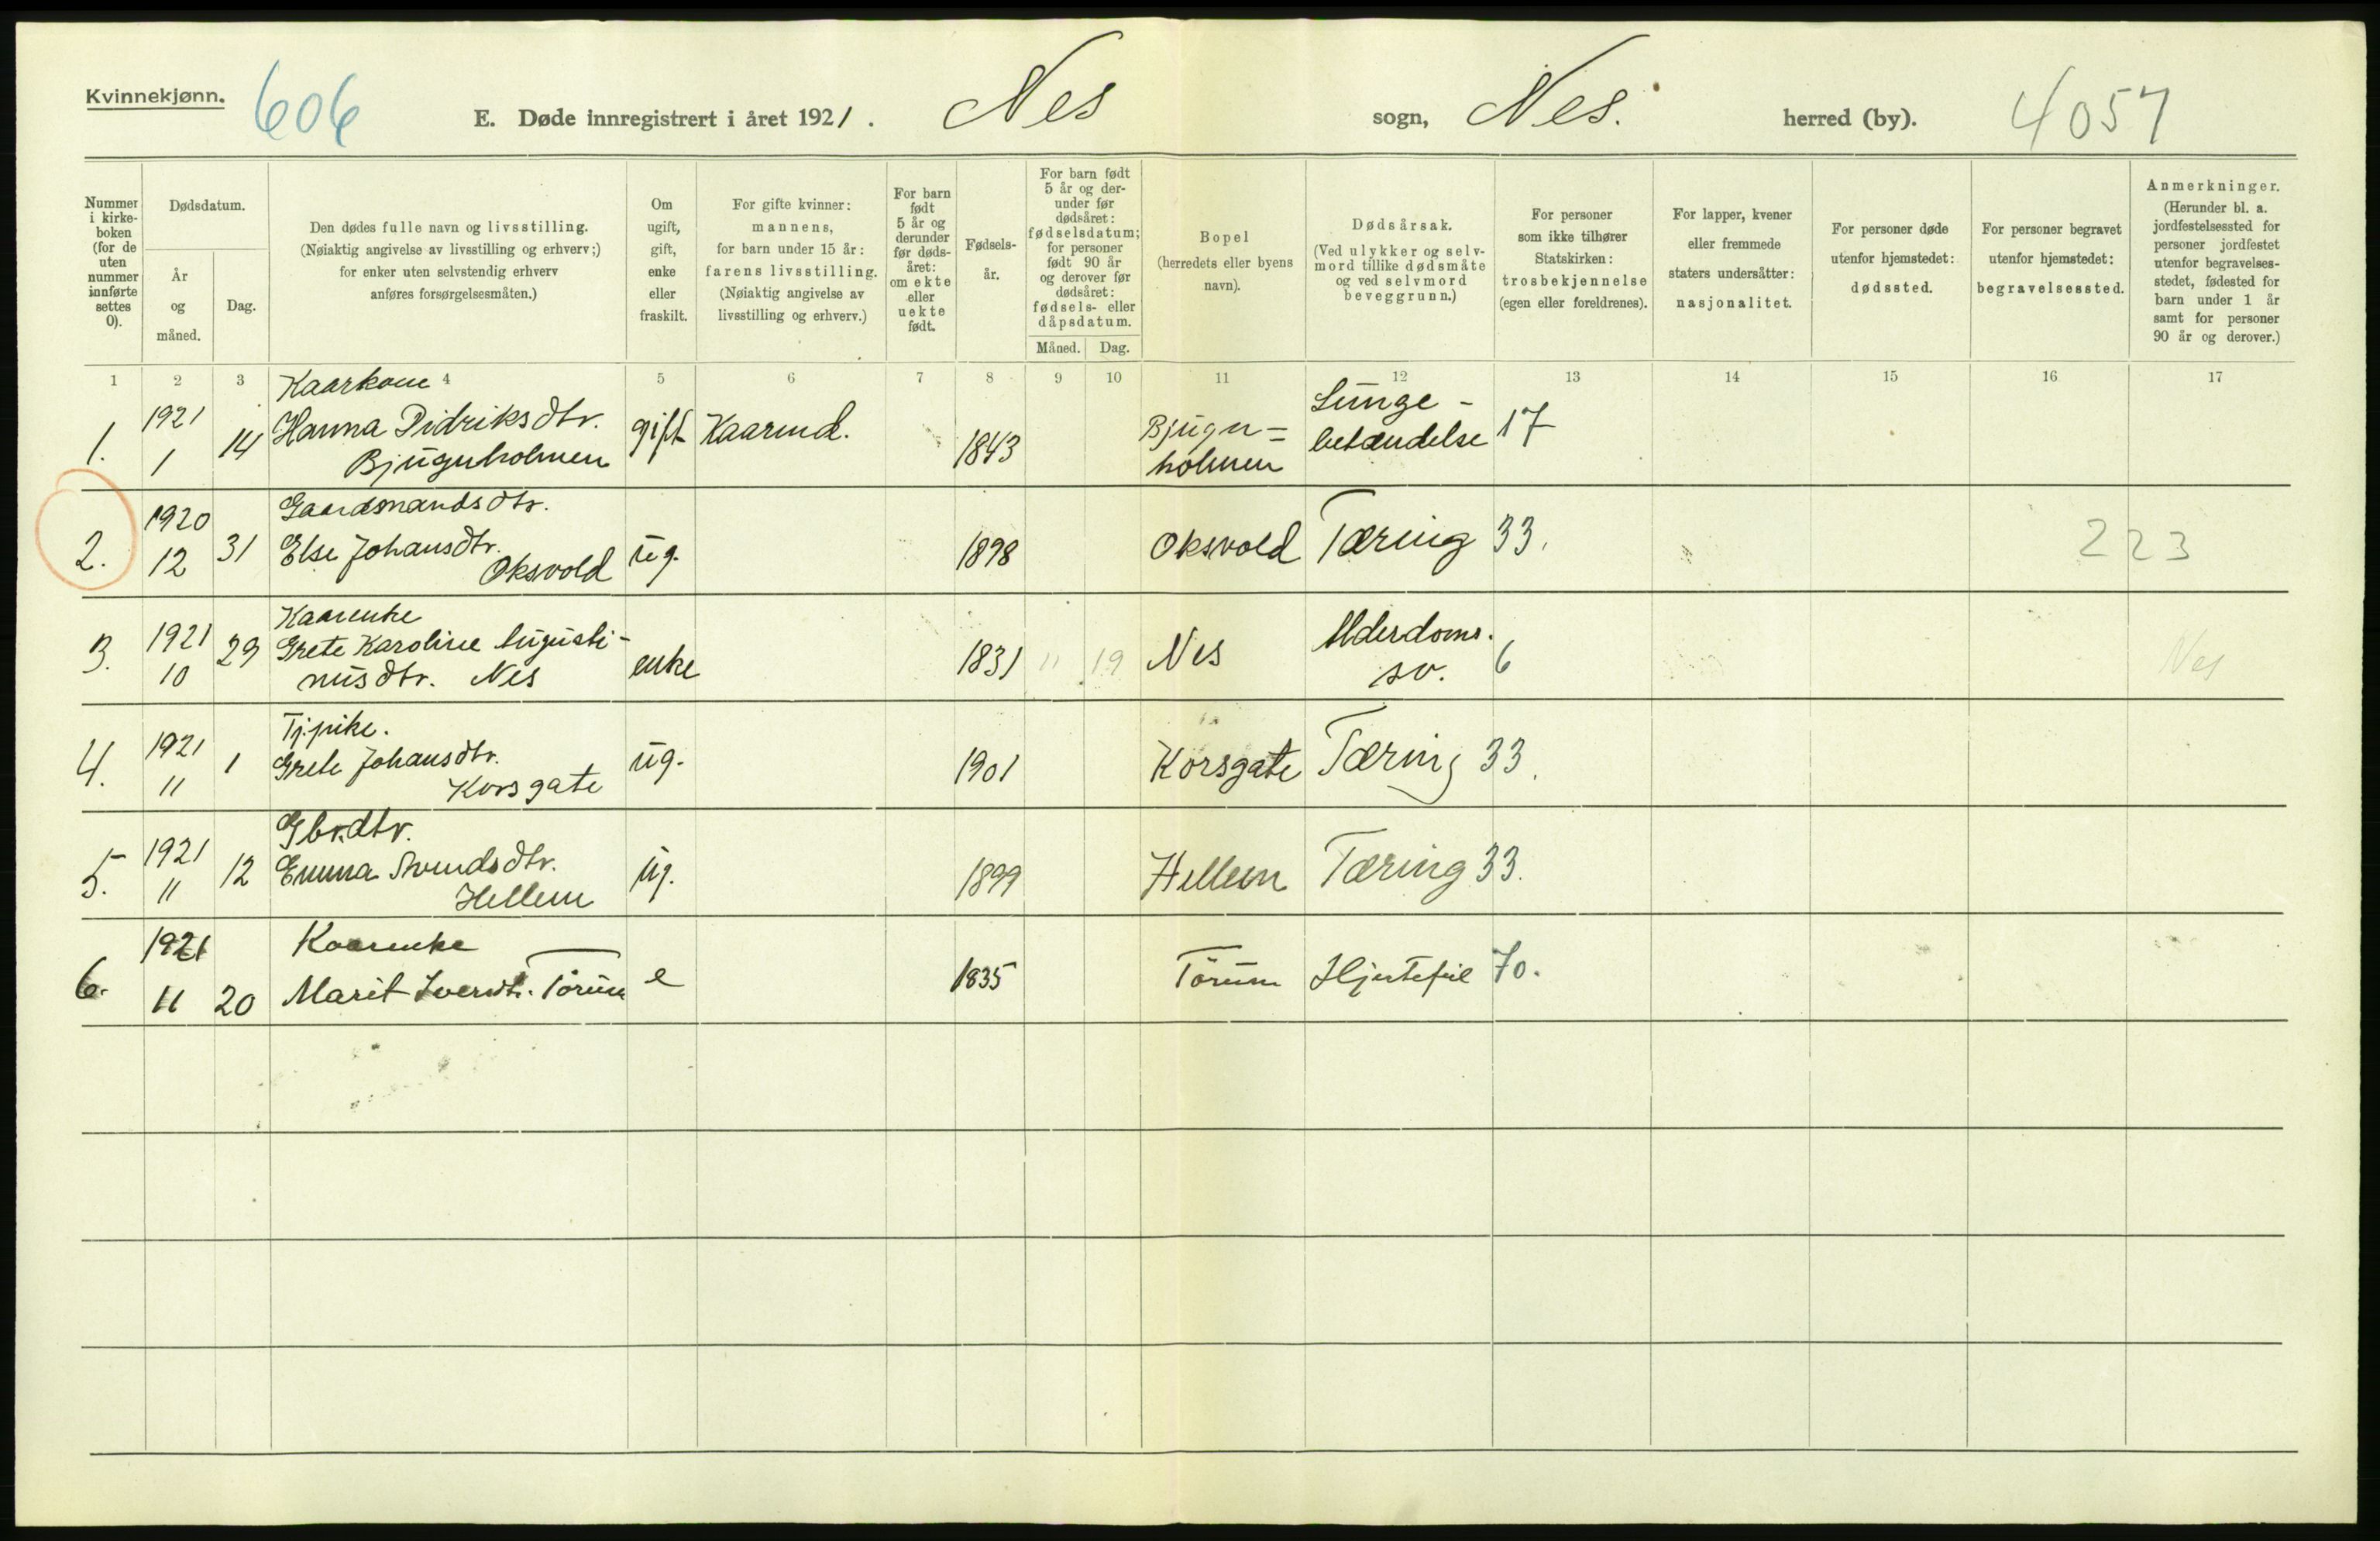 Kvinnekjønn.
606
E. Døde innregistrert i året 1921. Nes sogn, Nes. herred (by).
4057
Nummer i kirke- boken (for de uten nummer innførte settes 0).
Dødsdatum.
År og måned.
Dag.
Den dødes fulle navn og livsstilling.
(Nøiaktig angivelse av livsstilling og erhverv;)
for enker uten selvstendig erhverv
anføres forsørgelsesmåten.)
Om ugift, gift, enke eller fraskilt.
For gifte kvinner:
mannens,
for barn under 15 år:
farens livsstilling.
(Nøiaktig angivelse av
livsstilling og erhverv.)
For barn født 5 år og derunder før døds- året: om ekte eller uekte født.
Fødsels- år.
For barn født 5 år og der- under før dødsåret: fødselsdatum; for personer født 90 år og derover før dødsåret: fødsels- eller dåpsdatum.
Måned. Dag.
Bopel
(herredets eller byens
navn).
Dødsårsak.
(Ved ulykker og selv-
mord tillike dødsmåte
og ved selvmord
beveggrunn.)
For personer
som ikke tilhører
Statskirken:
trosbekjennelse
(egen eller foreldrenes).
For lapper, kvener
eller fremmede
staters undersåtter:
nasjonalitet.
For personer døde
utenfor hjemstedet:
dødssted.
For personer begravet
utenfor hjemstedet:
begravelsessted.
Anmerkninger.
(Herunder bl. a.
jordfestelsessted for
personer jordfestet
utenfor begravelses-
stedet, fødested for
barn under 1 år
samt for personer
90 år og derover.)
1 2 3 4 5 6 7 8 9 10 11 12 13 14 15 16 17
Kaarkone
1. 1921 1 14 Hanna Didriksdtr. gift Kaarmd. 1843 Bjugn= Lunge- 17
Bjugnholmen holmen betændelse
Gaardsmandsdtr.
2. 1920 12 31 Else Johansdtr. ug. 1898 Oksvold Tæring 33. 223
Oksvold
Kaarenke
3. 1921 10 29 Grete Karoline Augusti- enke 1831 11 19 Nes Alderdoms. 6 Nes
nusdtr. Nes sv.
Tj.pike.
4. 1921 11 1 Grete Johansdtr. ug. 1901 Korsgate Tæring 33.
Korsgate
Gbr.dtr.
5. 1921 11 12 Emma Svendsdtr. ug. 1899 Hellem Tæring 33.
Hellem
Kaarenke
6. 1921 11 20 Marit Iversdt. Tørum e 1835 Tørum Hjertefeil 70.